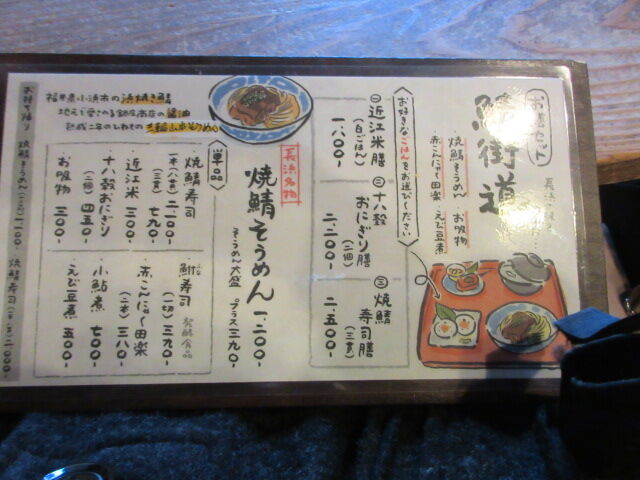 お膳セット
鯖街道
焼鯖そうめん お吸物
赤こんにゃく田楽 えび豆煮
お好きなごはんをお選びください
㊀近江米膳
(白ごはん)
一、八〇〇-
㊁十八穀
おにぎり膳
(二個)
二、二〇〇-
㊂焼鯖
寿司膳
(三貫)
二、五〇〇-
福井県小浜市の浜焼き鯖
長浜名物
焼鯖そうめん 一、二〇〇-
そうめん大盛 プラス 三九〇-
単品
焼鯖寿司
一本(八貫) 二、一〇〇-
(三貫) 七九〇-
近江米 三〇〇-
十八穀おにぎり
(二個) 四五〇-
お吸物 三〇〇-
鮒寿司 発酵食品
(一切) 三九〇-
赤こんにゃく田楽
(二本) 三八〇-
小鮎煮 七〇〇-
えび豆煮 五〇〇-
お持ち帰り
焼鯖そうめん
焼鯖寿司